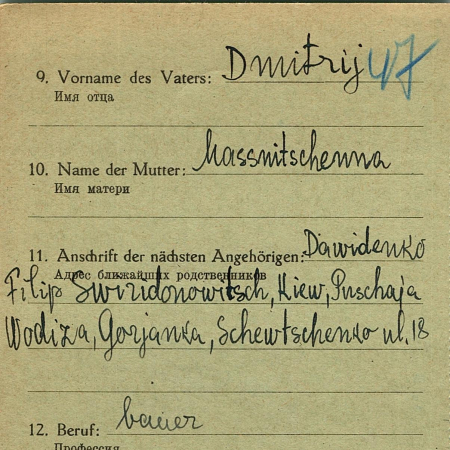 9. Vorname des Vaters: Dmitrij 47
Имя отца
10. Name der Mutter: Massnitschenna
Имя матери
11. Anschrift der nächsten Angehörigen: Dawidenko
Адрес ближайших родственников
Filip Swiridonowitsch, Kiew, Puschaja
Wodiza, Gorjanka, Schewtschenko ul. 18
12. Beruf: bauer
Профессия